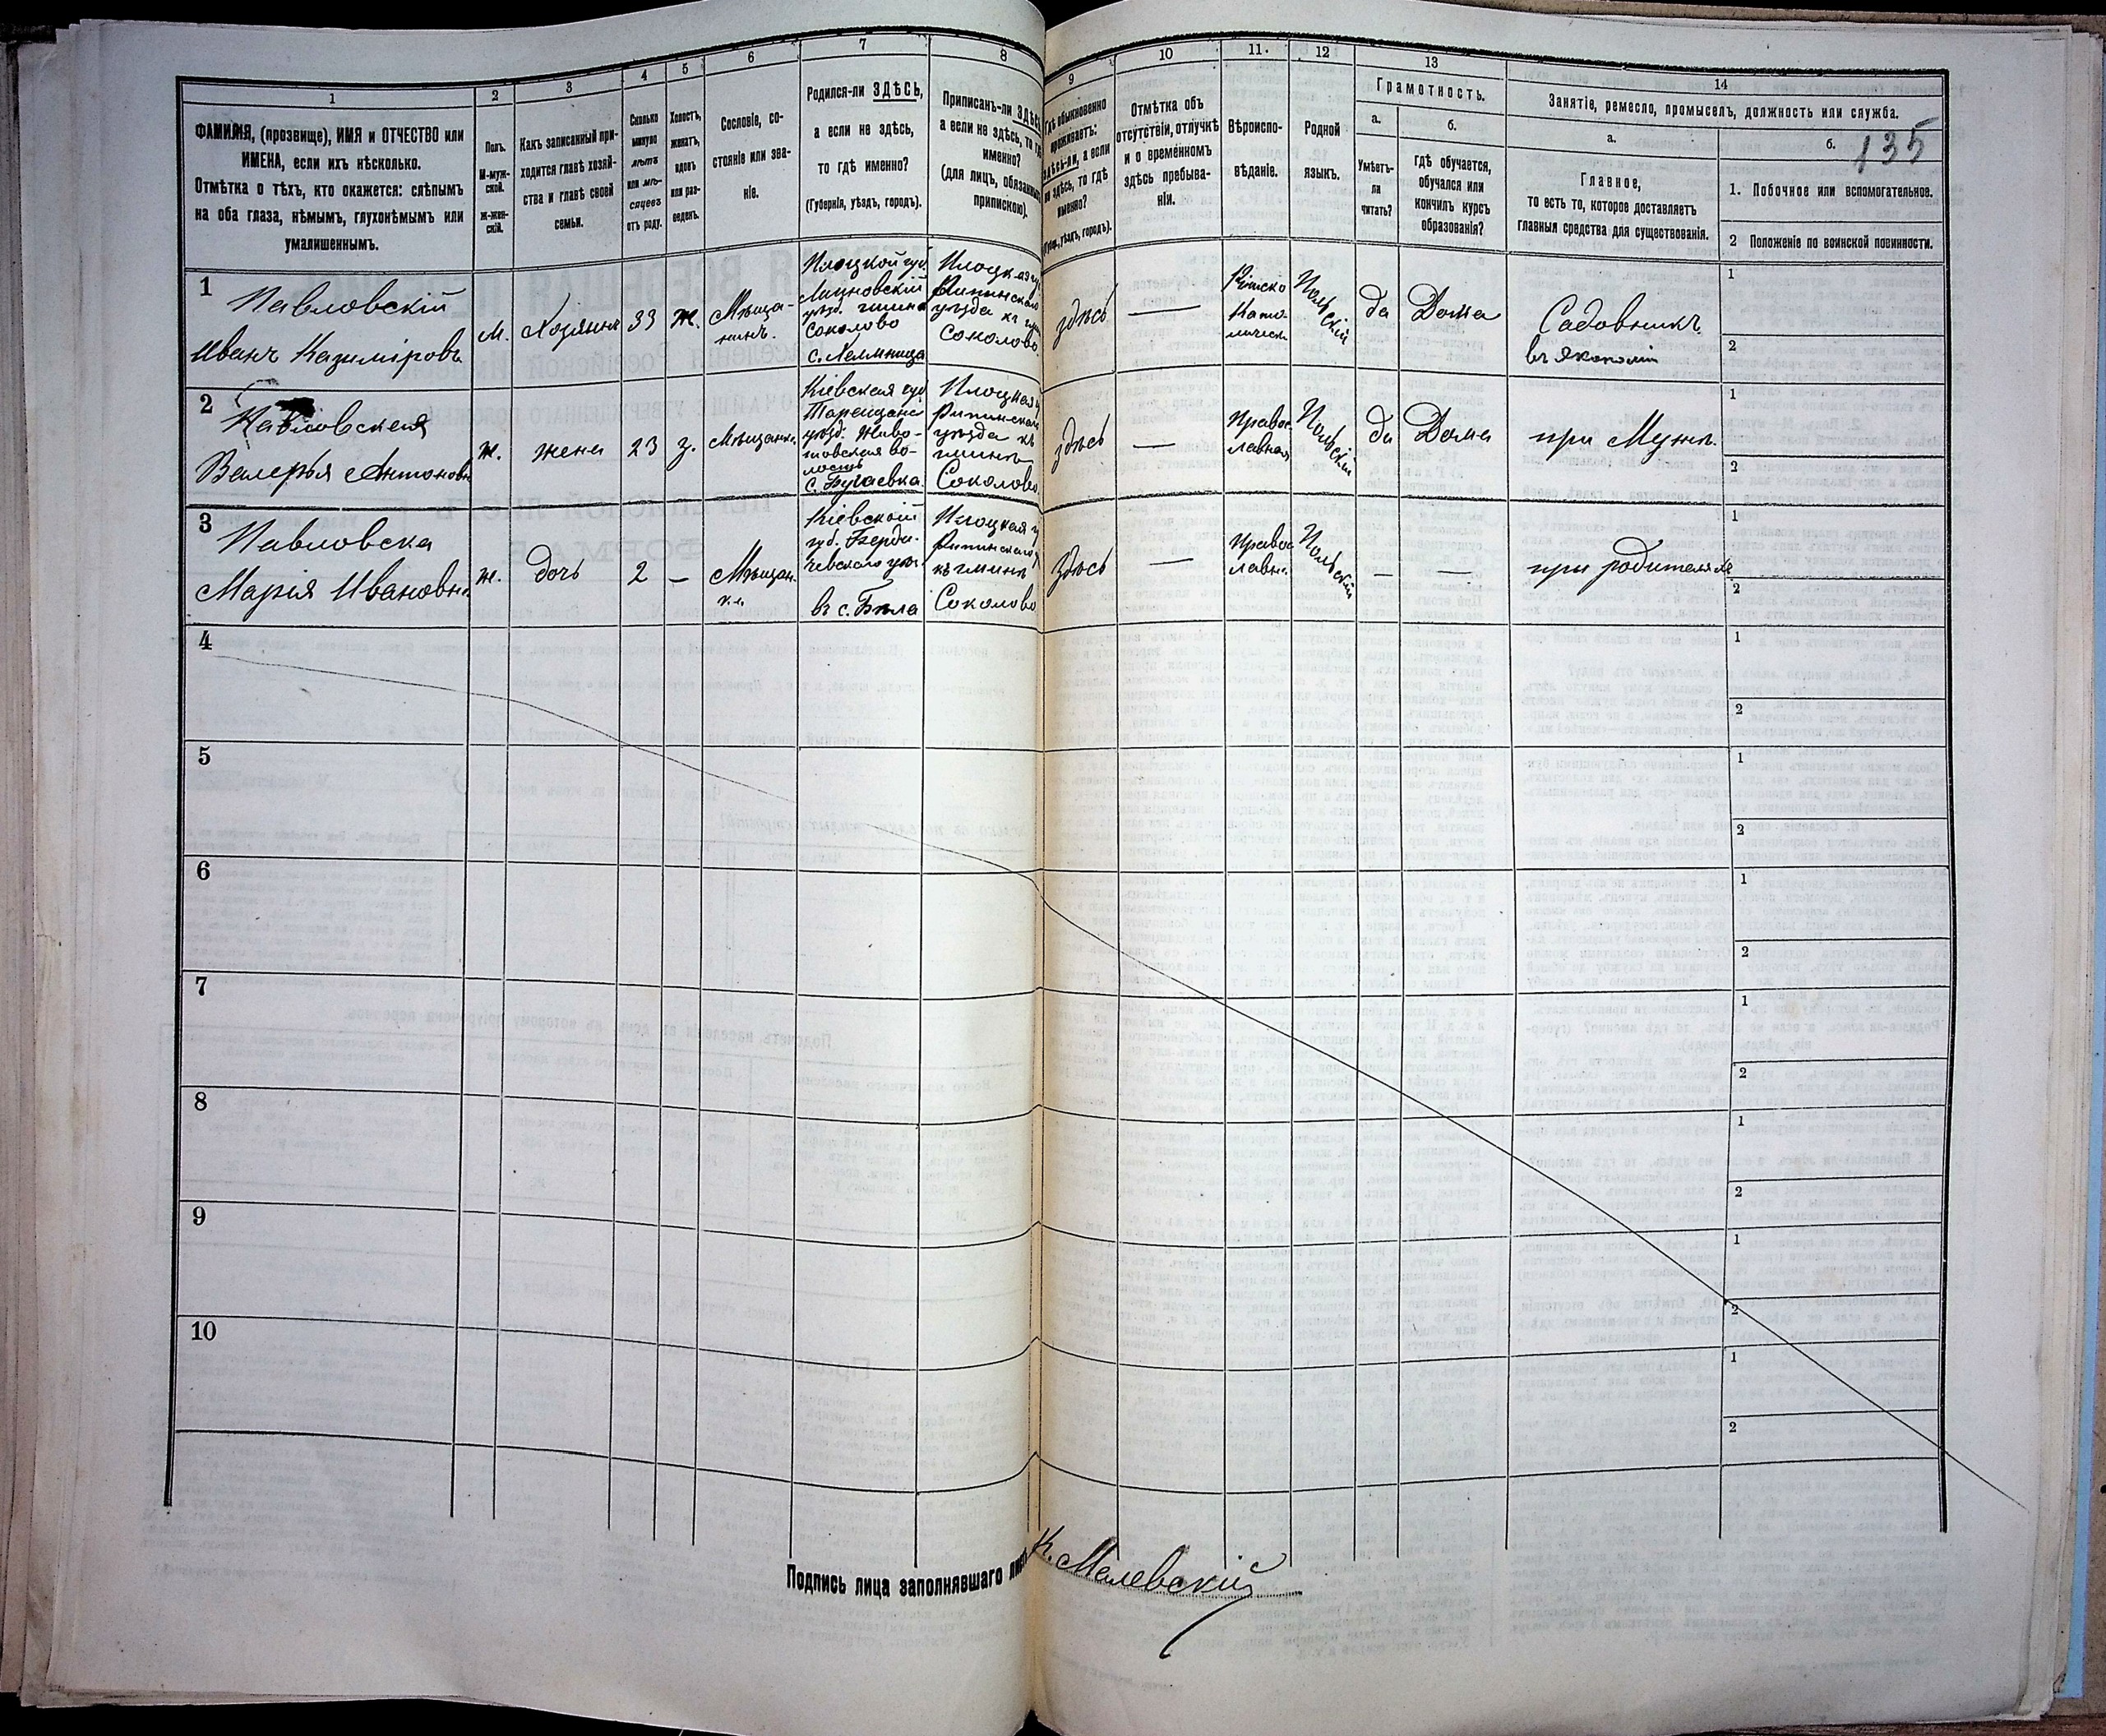 1
2
3
4
5
6
7
8
9
10
11.
12
13
14
ФАМИЛІЯ, (прозвище), ИМЯ и ОТЧЕСТВО или
ИМЕНА, если ихъ нѣсколько.
Отмѣтка о тѣхъ, кто окажется: слѣпымъ
на оба глаза, нѣмымъ, глухонѣмымъ или
умалишеннымъ.
Полъ.
М-муж-
ской.
Ж-жен-
скій.
Какъ записанный при-
ходится главѣ хозяй-
ства и главѣ своей
семьи.
Сколько
минуло
лѣтъ
или мѣ-
сяцевъ
отъ роду.
Холостъ,
женатъ,
вдовъ
или раз-
веденъ.
Сословіе, со-
стояніе или зва-
ніе.
Родился-ли ЗДѢСЬ,
а если не здѣсь,
то гдѣ именно?
(Губернія, уѣздъ, городъ).
Приписанъ-ли ЗДѢСЬ,
а если не здѣсь, то гдѣ
именно?
(для лицъ, обязанныхъ
припискою).
Гдѣ обыкновенно
проживаетъ:
здѣсь-ли, а если
не здѣсь, то гдѣ
именно?
(Губ., уѣздъ, городъ).
Отмѣтка объ
отсутствіи, отлучкѣ
и о временномъ
здѣсь пребыва-
ніи.
Вѣроиспо-
вѣданіе.
Родной
языкъ.
Грамотность.
а.
Умѣетъ-
ли
читать?
б.
гдѣ обучается,
обучался или
кончилъ курсъ
образованія?
Занятіе, ремесло, промыселъ, должность или служба.
а.
Главное,
то есть то, которое доставляетъ
главныя средства для существованія.
б.
135
1. Побочное или вспомогательное.
2 Положеніе по воинской повинности.
1
Павловскій
Иванъ Казиміровъ
м.
Хозяинъ
33
ж.
Мѣща-
нинъ.
Плоцкой губ.
Липновскій
уѣзд. гмина
Соколово
Плоцкая г.
Рипинскаго
уѣзда къ гмин
Соколово.
здѣсь
—
Римско
Като
лическ
Польскій
да
Дома
Садовникъ
въ Экономіи
1
2
2
Павловская
Валерья Антоновн
ж.
жена
23
з.
Мѣщанка
Кіевская губ
Таращанс
уѣзд. Живо-
товская во-
лость
с. Бугаевка.
Плоцкая г
Рипинскаго
уѣзда къ
гминѣ
Соколово.
здѣсь
—
Право
славная
Польскій
да
Дома
при Мужѣ.
1
2
3
Павловска
Марія Ивановна
ж.
дочь
2
—
Мѣщан
ка
Кіевской
губ. Берди-
чевскаго уѣз.
въ с. Бѣла
Плоцкая г
Рипинскаго у
къ гминѣ
Соколово
здѣсь
—
Право
славн.
Польскій
—
—
при родителяхъ
1
2
4
1
2
5
1
2
6
1
2
7
1
2
8
1
2
9
1
2
10
1
2
Подпись лица заполнявшаго листъ
К. Малевскій